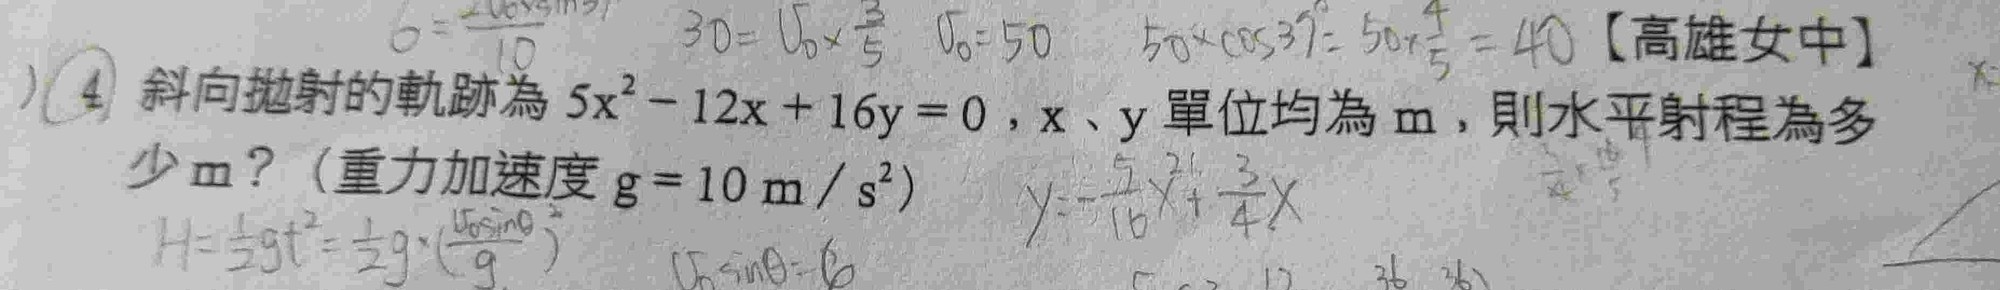 30 = V₀ × 3/5 V₀ = 50 50 × cos37° = 50 × 4/5 = 40 【高雄女中】
4 斜向拋射的軌跡為 5x² − 12x + 16y = 0，x、y 單位均為 m，則水平射程為多
少 m？（重力加速度 g = 10 m / s²）
y = −5/16 x² + 3/4 x
H = 1/2 gt² = 1/2 g · (V₀sinθ/g)²
V₀ sinθ = 6